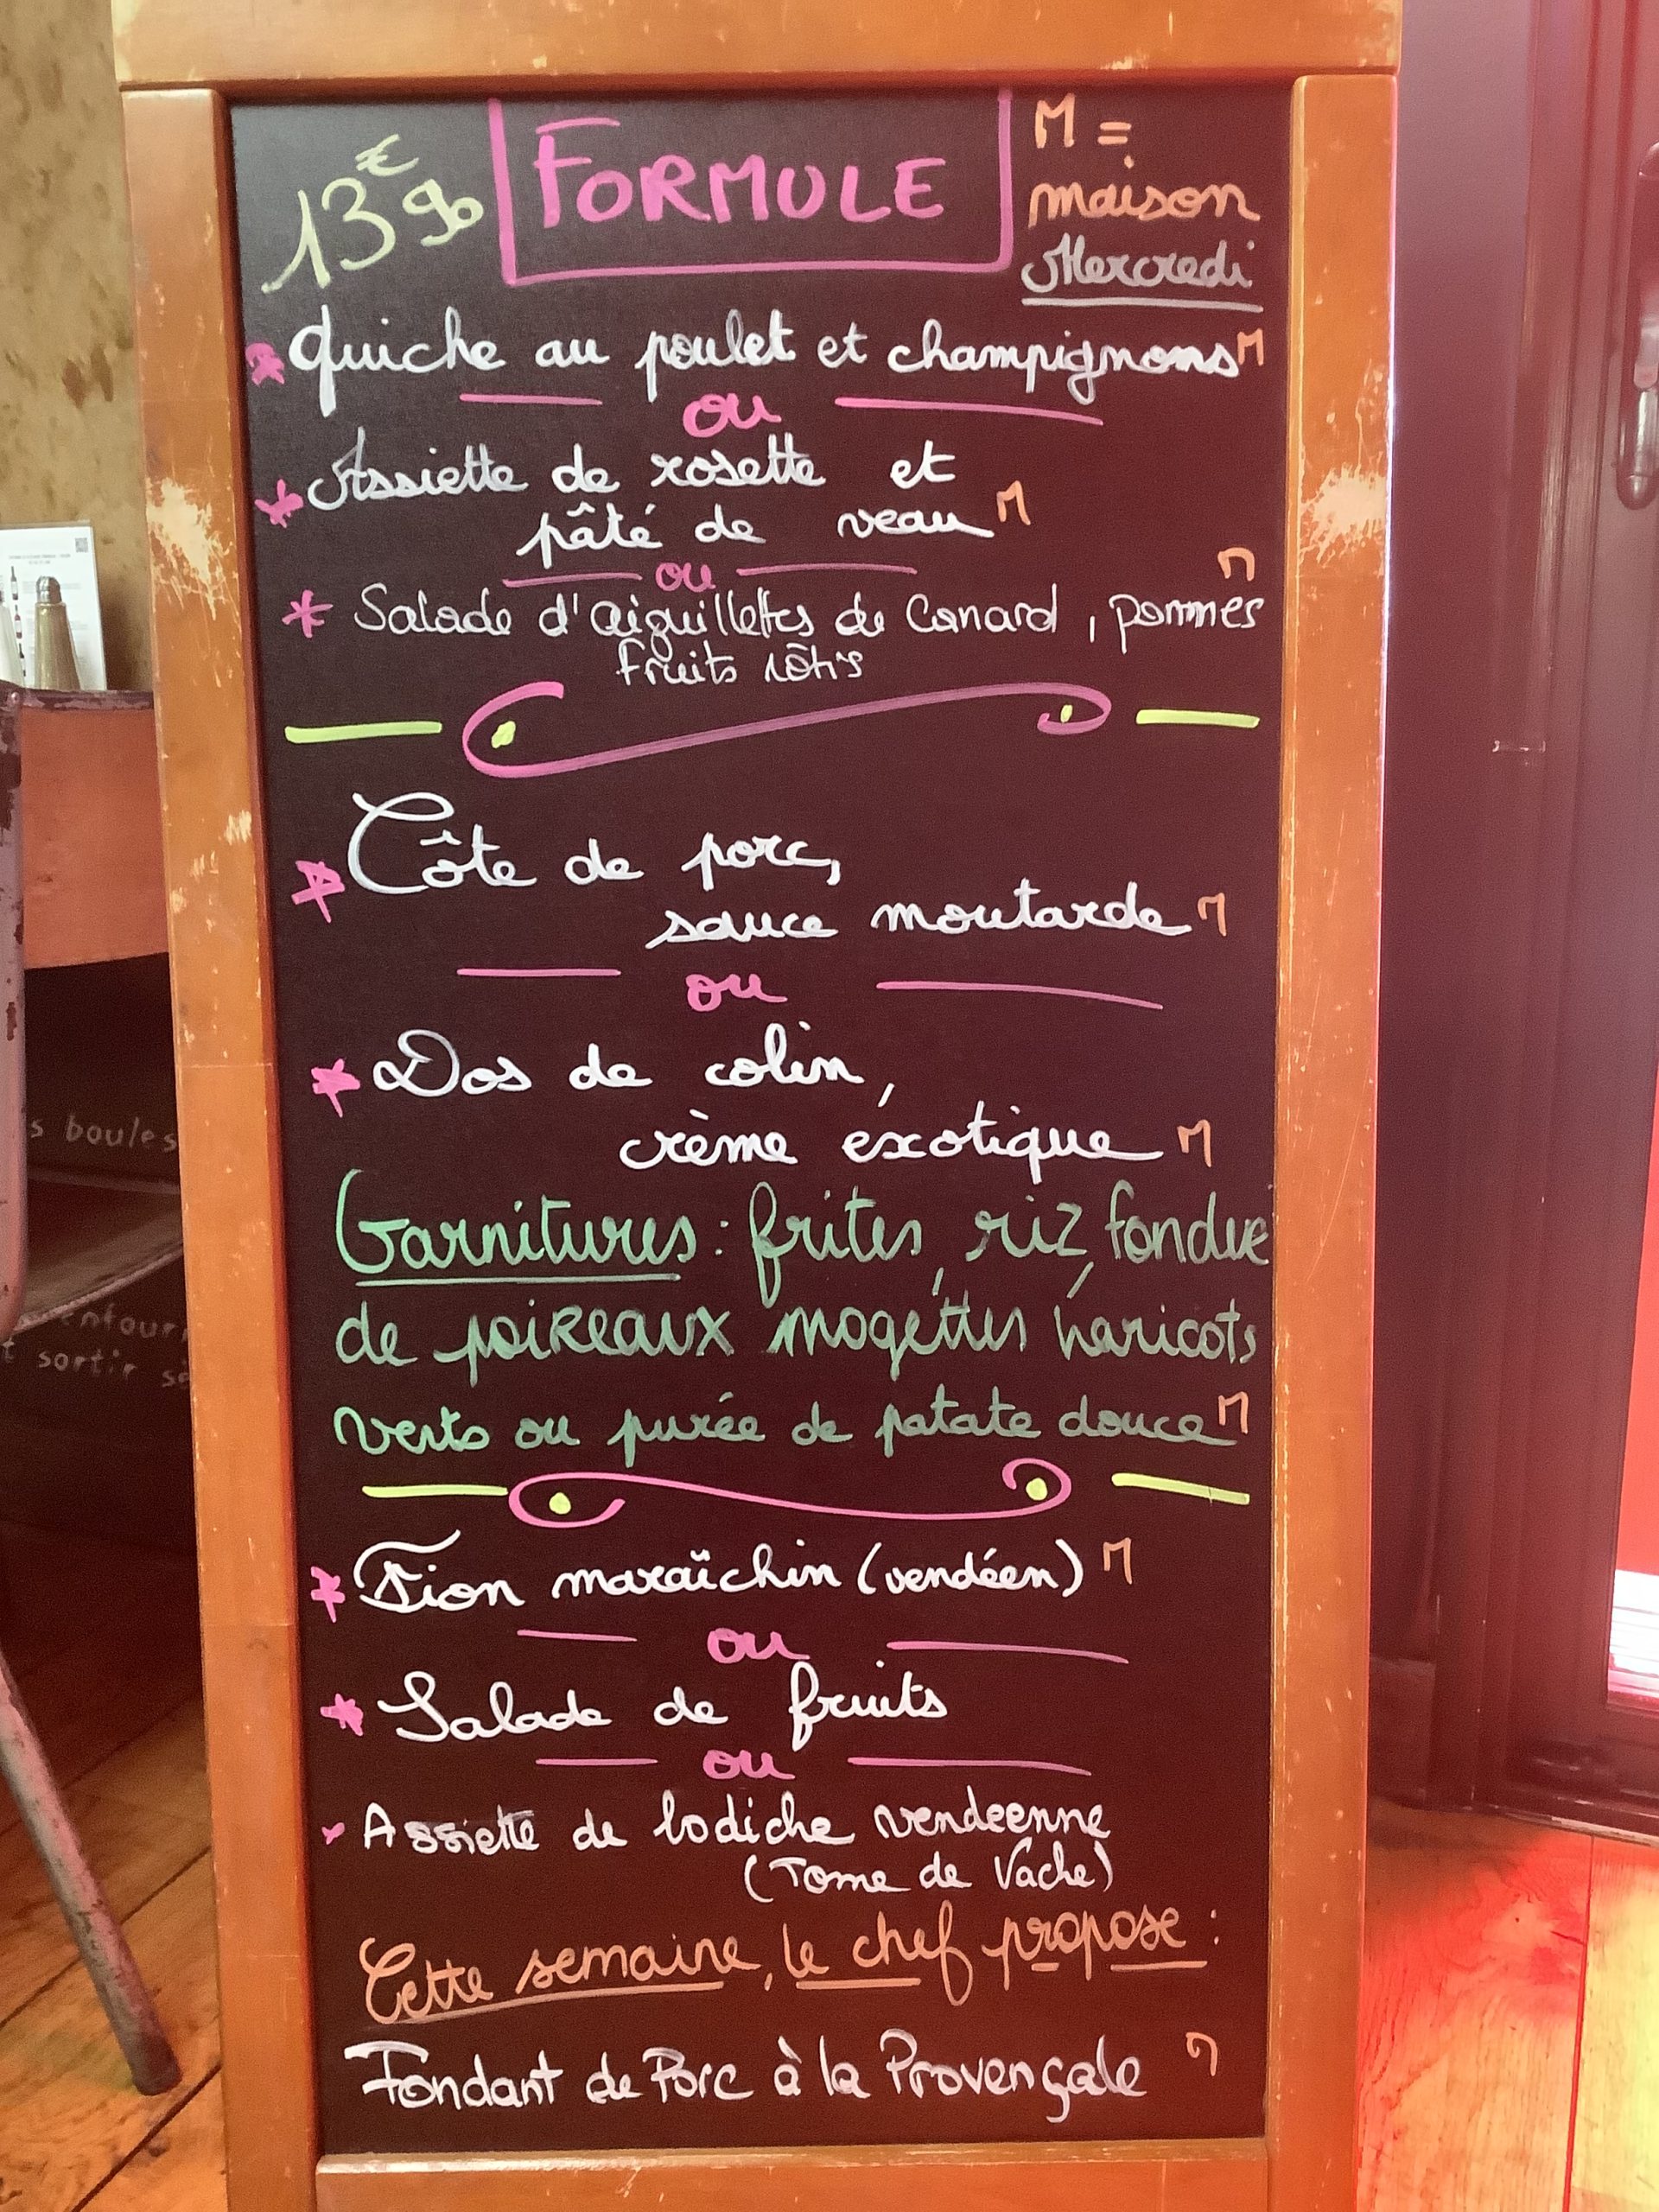 13€90 FORMULE M =
maison
Mercredi
* quiche au poulet et champignons M
ou
* Assiette de rosette et
pâté de veau M
ou
* Salade d'aiguillettes de Canard, pommes M
fruits rôtis
* Côte de porc,
sauce moutarde M
ou
* Dos de colin,
crème éxotique M
Garnitures : frites, riz, fondue
de poireaux mogettes haricots
verts ou purée de patate douce M
* Fion maraîchin (vendéen) M
ou
* Salade de fruits
ou
* Assiette de lodiche vendeenne
(Tome de Vache)
Cette semaine, le chef propose :
Fondant de Porc à la Provençale M
s boules
sortir